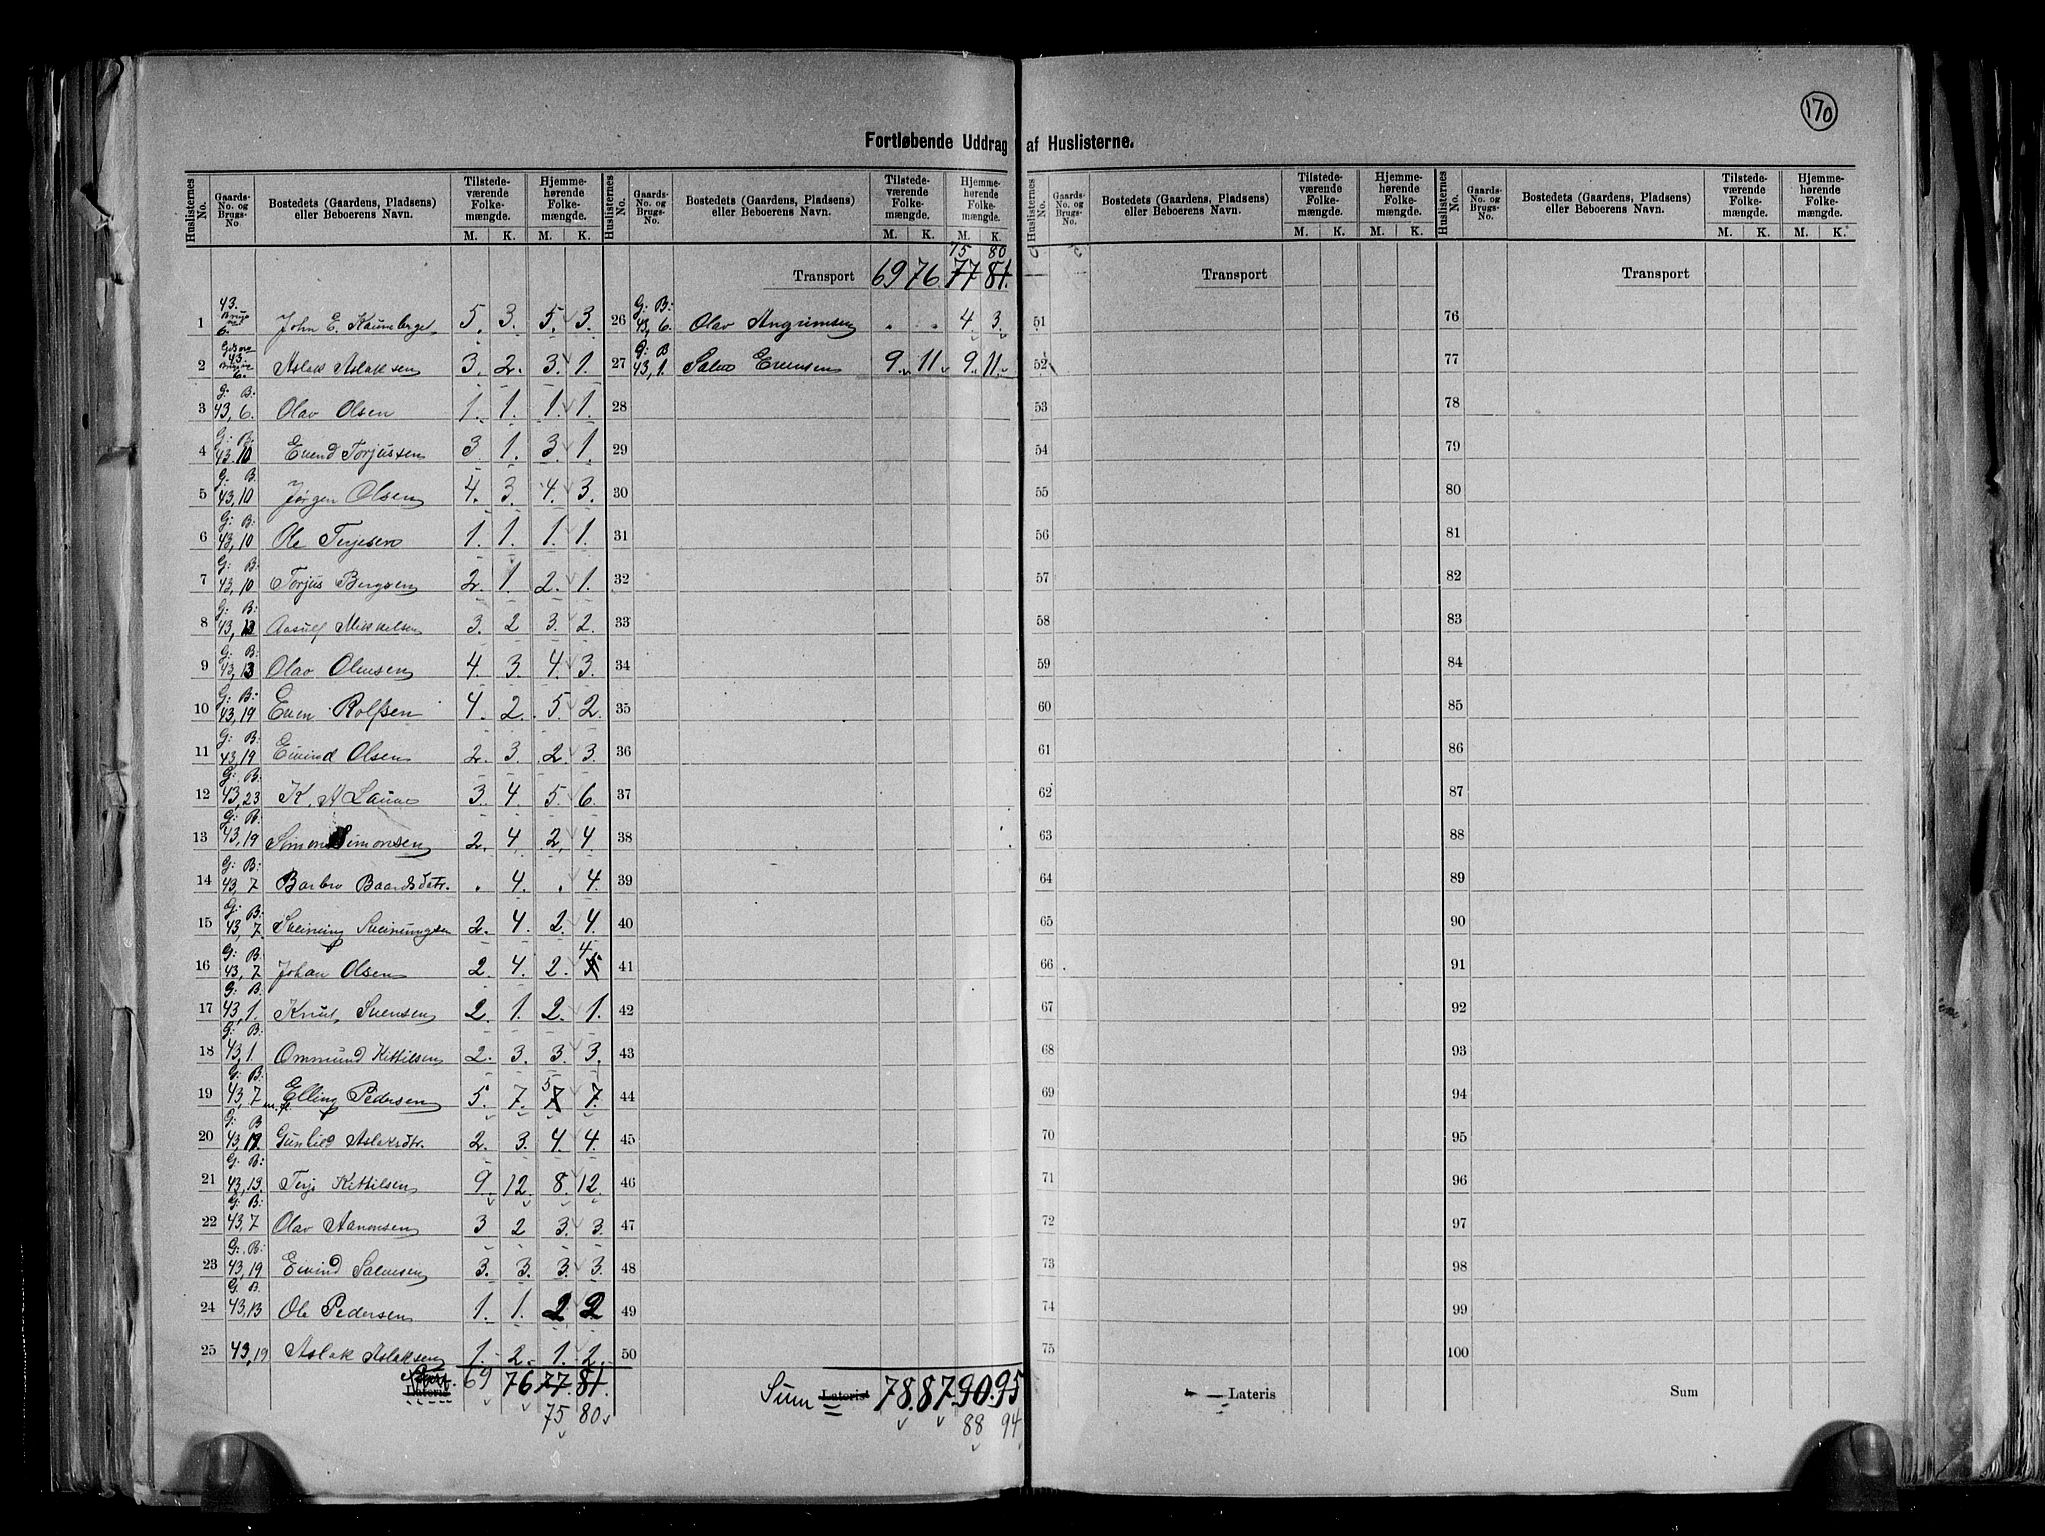 170
Fortløbende Uddrag af Huslisterne.
Huslisternes No. Gaards-No. og Brugs-No Bostedets (Gaardens, Pladsens) eller Beboerens Navn. Tilstedeværende Folkemængde. M. K. Hjemmehørende Folkemængde. M. K.
1 43. 6. John E. 5. 3. 5. 3.
2 43. 6. Aslak Aslaksen 3. 2. 3. 1.
3 G: B: 43, 6. Olav Olsen 1. 1. 1. 1.
4 G: B: 43, 10 Evend Torjussen 3 1. 3. 1.
5 G: B. 43, 10 Jørgen Olsen 4. 3. 4. 3.
6 G: B: 43, 10 Ole Terjesen 1. 1. 1. 1.
7 G: B: 43, 10 Torjus Bergsen 2. 1. 2. 1.
8 G: B: 43, 13 Aasulf Mikkelsen 3. 2 3. 2.
9 G: B: 43, 13 Olav 4. 3. 4. 3.
10 G: B: 43, 19 Even Rolfsen 4. 2. 5. 2.
11 G: B: 43, 19 Eivind Olsen 2. 3. 2 3.
12 G: B. 43, 23 K. A 3. 4. 5. 6.
13 G: B. 43, 19 Simon Simonsen 2. 4. 2. 4.
14 G: B: 43, 7 Barbro Baardsdtr. . 4. . 4.
15 G: B: 43, 7. Sveinung Sveinungsen 2. 4. 2. 4.
16 G: B: 43, 7. Johan Olsen 2. 4. 2. 4
17 G: B. 43, 1. Knut Svensen 2. 1. 2. 1.
18 G: B: 43, 1. Ommund Kittilsen 2. 3. 3. 3.
19 G: B: 43, 7 Elling Pedersen 5. 7. 5 7 7.
20 G: B 43, 19. Gunlid Aslaksdtr. 2. 3. 4. 4.
21 G: B: 43, 19. Terje Kittilsen 9. 12. 8. 12.
22 G: B: 43, 7 Olav Aanonsen 3 2 3. 3.
23 G: B: 43, 19 Eivind Salvesen 3. 3. 3. 3.
24 G: B. 43, 13 Ole Pedersen 1. 1. 2 2
25 43, 19 Aslak Aslaksen 1. 2. 1. 2.
Lateris 69 76 77. 81.
75 80
Huslisternes No. Gaards-No. og Brugs-No. Bostedets (Gaardens, Pladsens) eller Beboerens Navn. Tilstedeværende Folkemængde. M. K. Hjemmehørende Folkemængde. M. K.
75 80
Transport 69 76. 77 81.
26 G: B: 43, 6. Olav . . 4. 3.
27 G: B 43, 1. 9. 11. 9. 11.
28
29
30
31
32
33
34
35
36
37
38
39
40
41
42
43
44
45
46
47
48
49
50
Sum Lateris 78. 87. 90. 95
88 94
Huslisternes No. Gaards-No. og Brugs-No. Bostedets (Gaardens, Pladsens) eller Beboerens Navn. Tilstedeværende Folkemængde. M. K. Hjemmehørende Folkemængde. M. K.
Transport
51
52
53
54
55
56
57
58
59
60
61
62
63
64
65
66
67
68
69
70
71
72
73
74
75
Lateris
Huslisternes No. Gaards-No. og Brugs-No. Bostedets (Gaardens, Pladsens) eller Beboerens Navn. Tilstedeværende Folkemængde. M. K. Hjemmehørende Folkemængde. M. K.
Transport
76
77
78
79
80
81
82
83
84
85
86
87
88
89
90
91
92
93
94
95
96
97
98
99
100
Sum